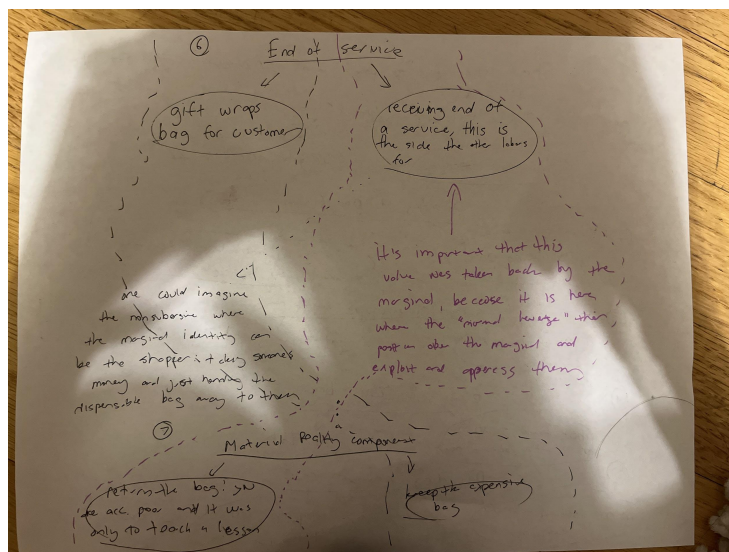 ⑥ End of service
gift wraps
bag for customer
receiving end of
a service, this is
the side the other labors
for
It is important that this
value was taken back by the
marginal, because it is here
where the "normal leverage" their
position over the marginal and
exploit and oppress them
one could imagine
the nonsubversive where
the marginal identity can
be the shopper
money and just handing the
dispensible bag away to them
⑦ Material Reality component
return the bag!
are acc. poor and it was
only to teach a lesson
keep the expensive
bag